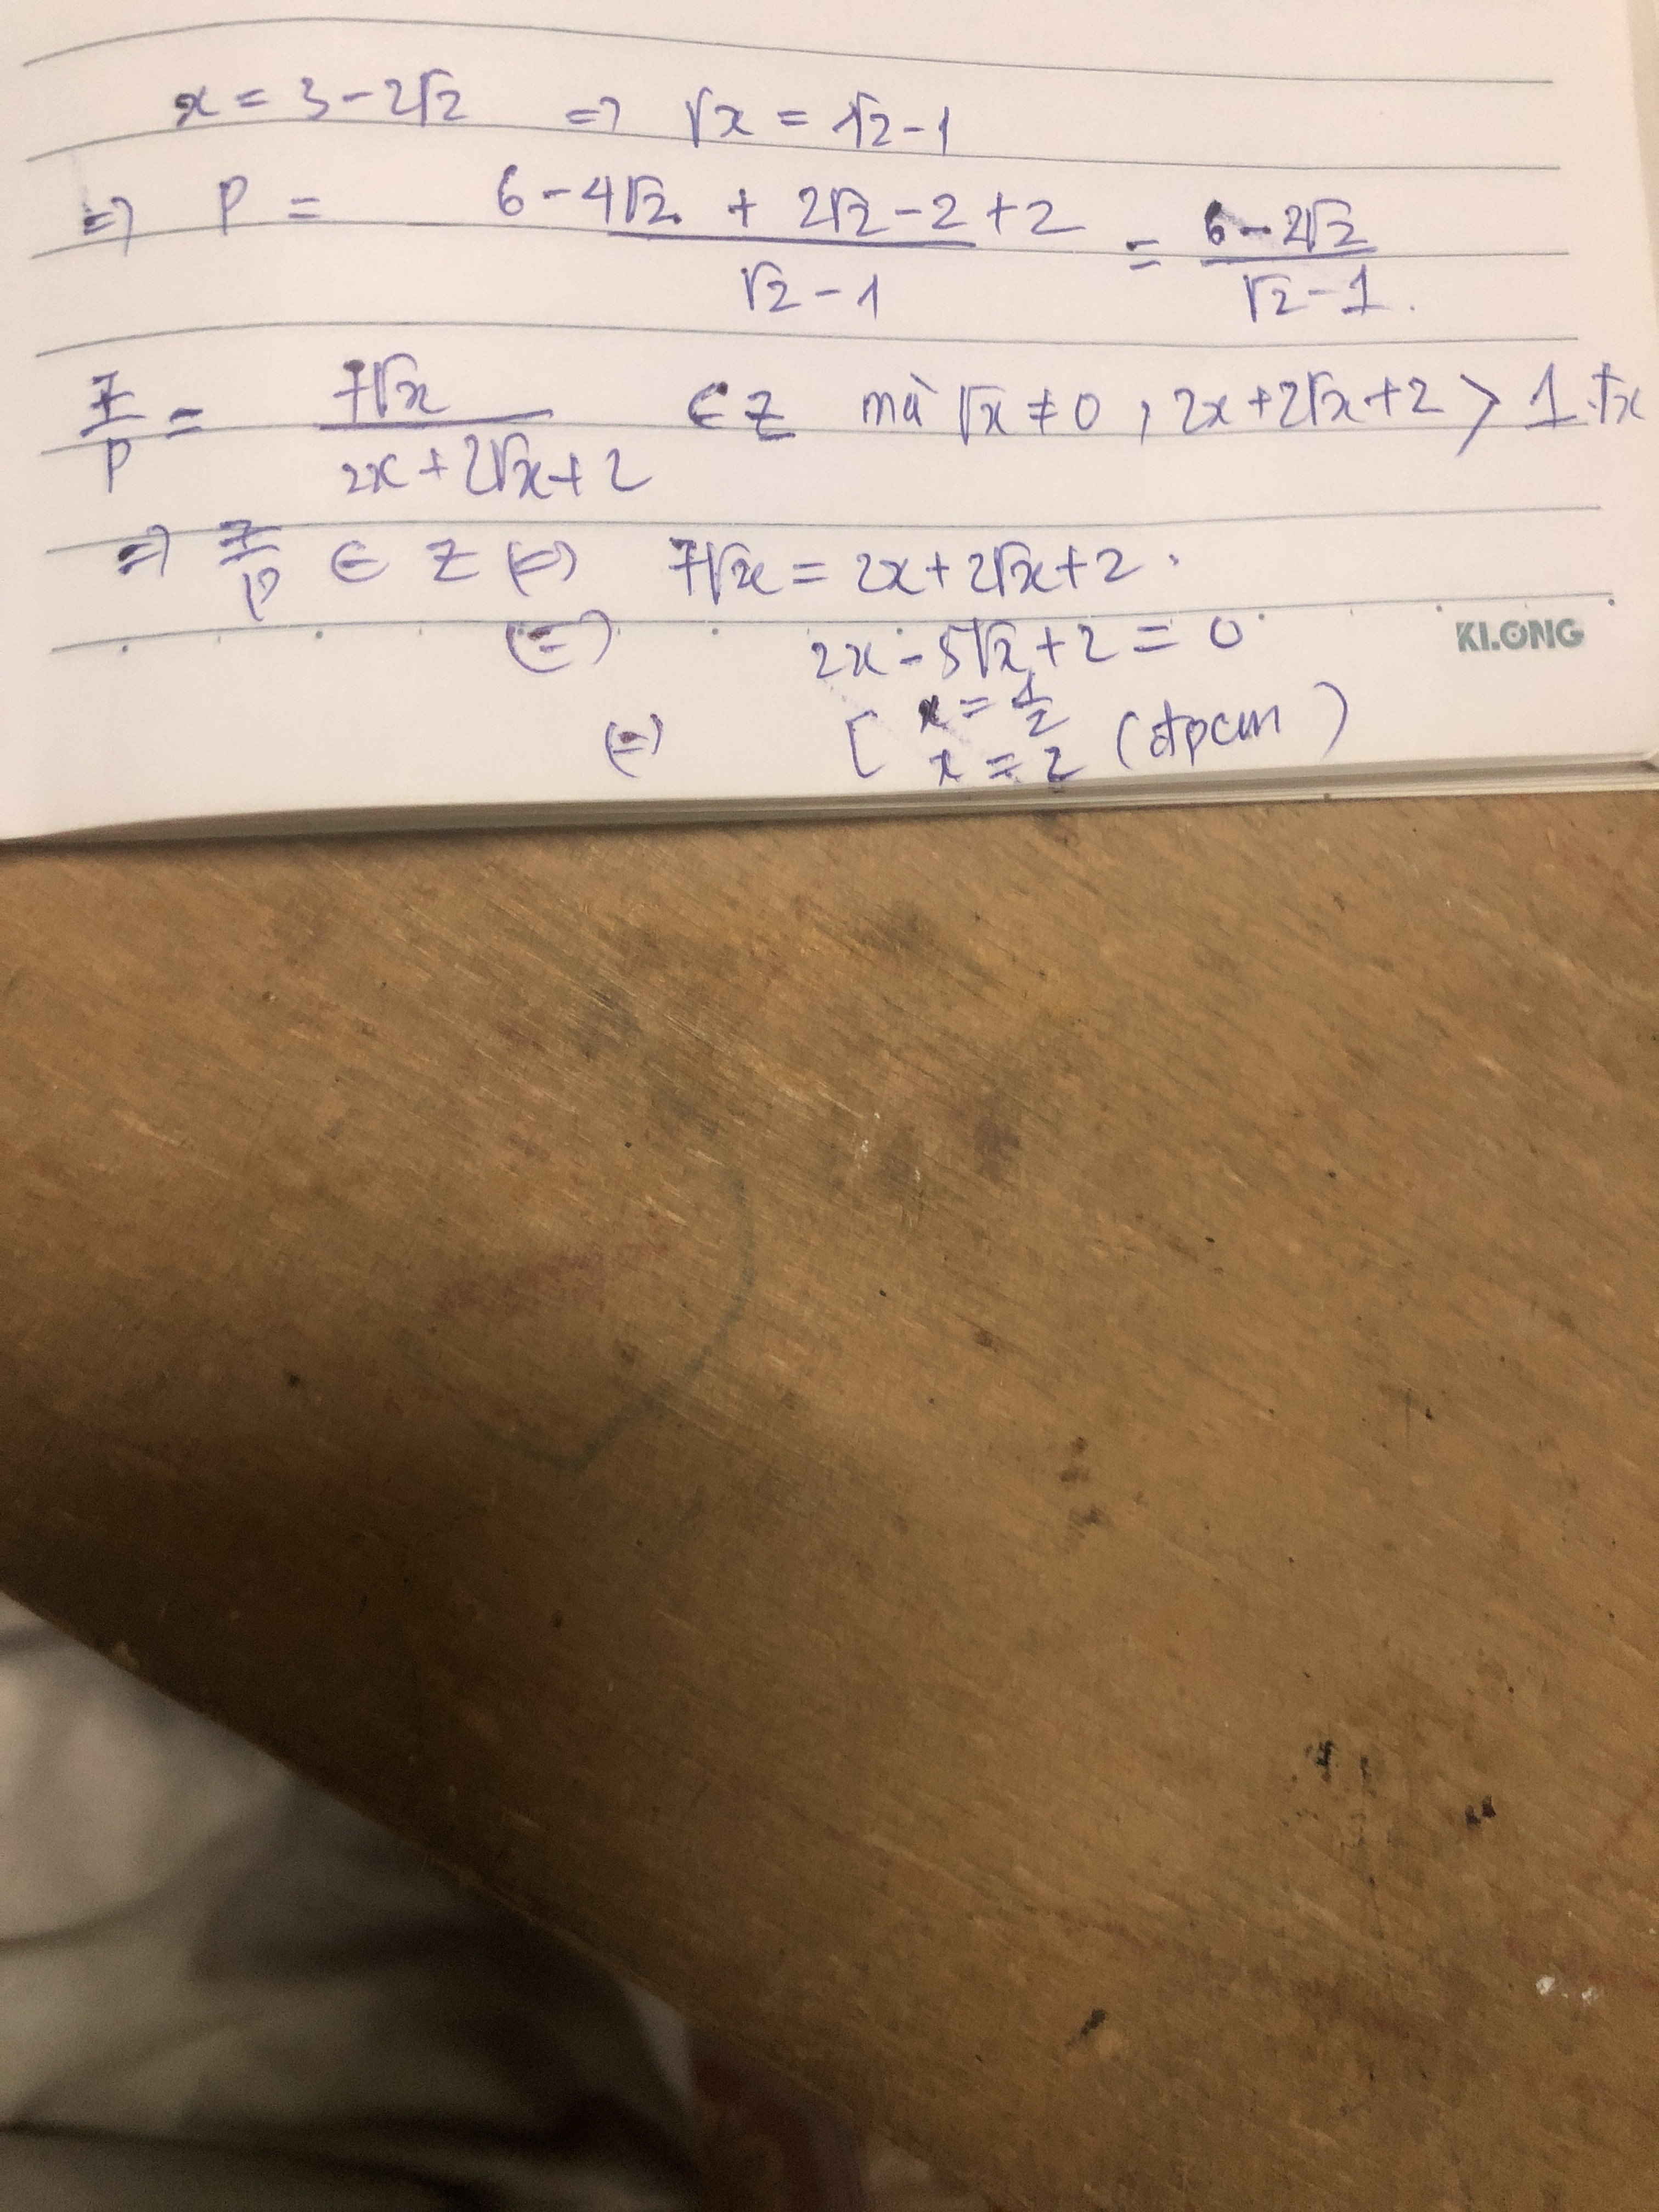 x = 3 - 2√2 => √x = √2 - 1
=> P = (6 - 4√2 + 2√2 - 2 + 2) / (√2 - 1) = (6 - 2√2) / (√2 - 1).
7/P = 7√x / (2x + 2√x + 2) ∈ Z mà √x ≠ 0, 2x + 2√x + 2 > 1.√x
=> 7/P ∈ Z (=) 7√x = 2x + 2√x + 2.
(=) 2x - 5√x + 2 = 0
KLONG
(=) [ x = 1/2
x = 2 (đpcm)